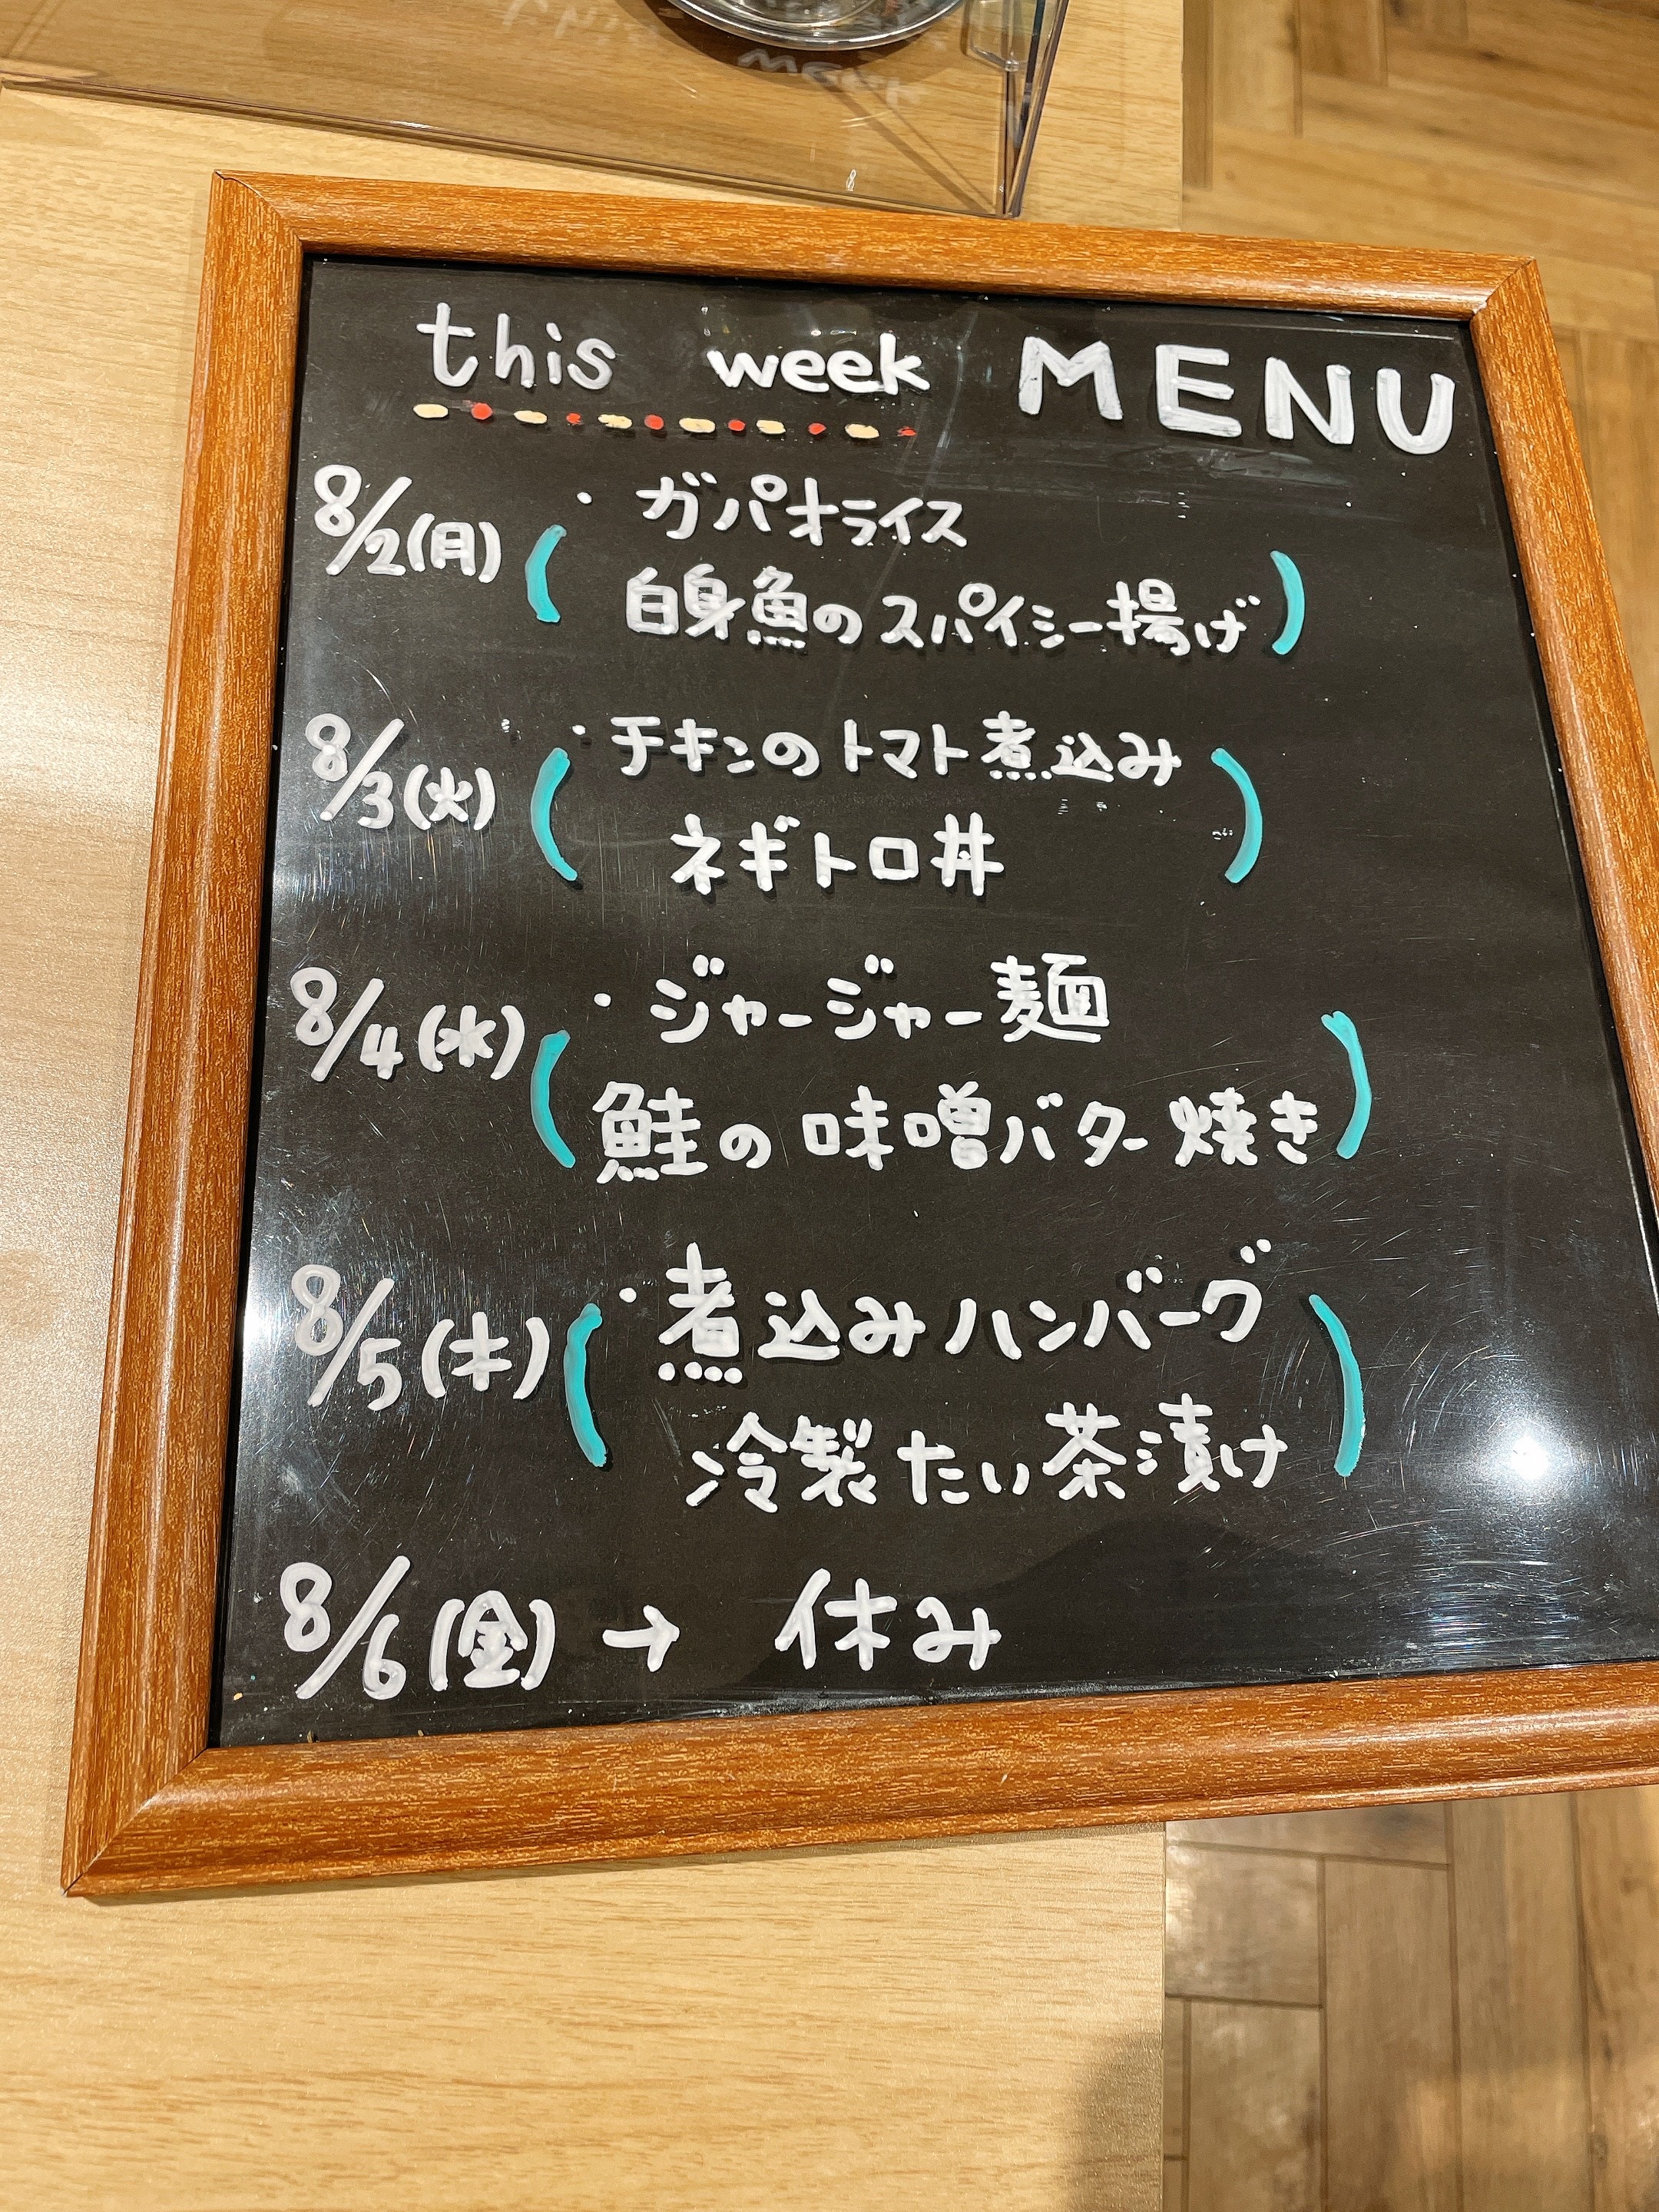 this week MENU
8/2(月) ・ ガパオライス
白身魚のスパイシー揚げ
8/3(火) ・ チキンのトマト煮込み
ネギトロ丼
8/4(水) ・ ジャージャー麺
鮭の味噌バター焼き
8/5(木) ・ 煮込みハンバーグ
冷製たい茶漬け
8/6(金) → 休み